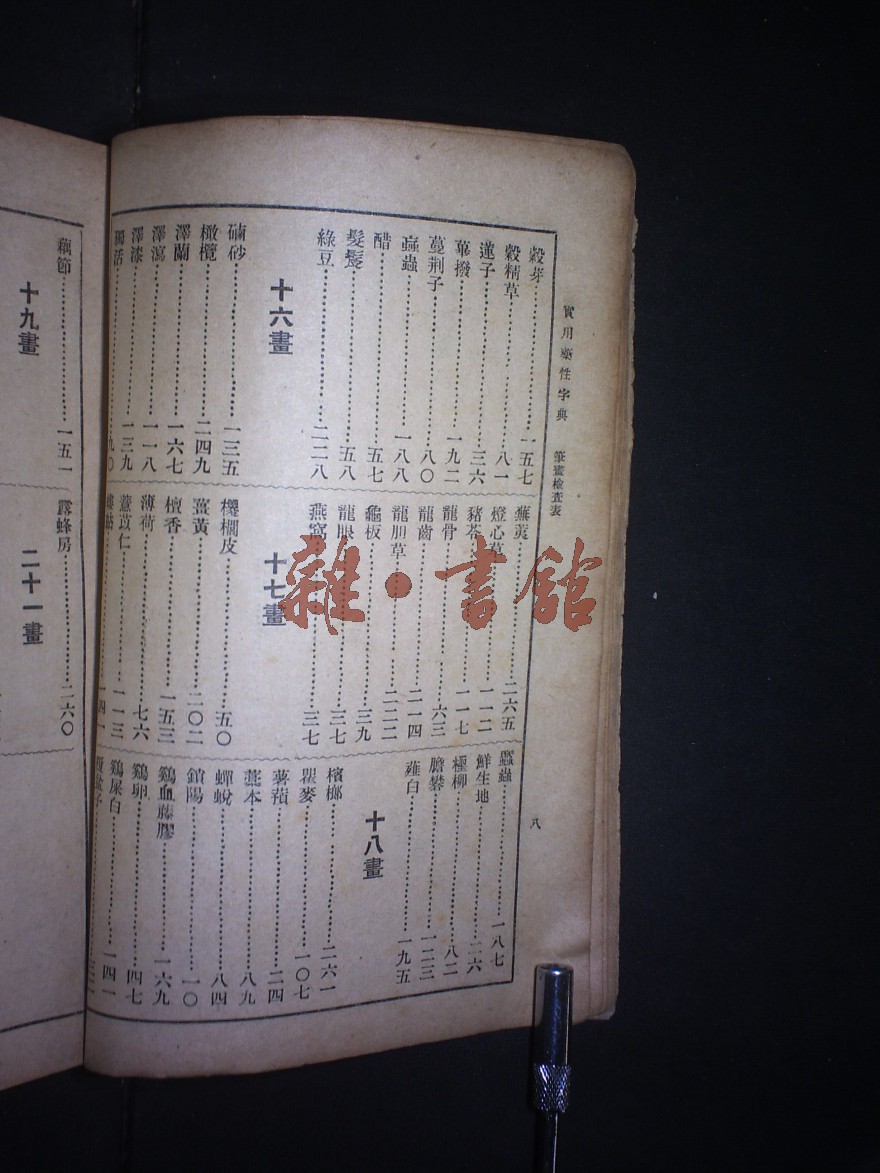 實用藥性字典 筆畫檢查表
八
穀芽 一五七
穀精草 八一
蓮子 三六
蓽撥 一九二
蔓荆子 八〇
蝱蟲 一八八
醋 五七
髮髲 五八
綠豆 二二八
十六畫
硇砂 一三五
橄欖 二四九
澤蘭 一六七
澤瀉 一一八
澤漆 一三九
獨活 九〇
蕪荑 二六五
燈心草 一一二
豬苓 一一七
龍骨 六三
龍齒 二一四
龍胆草 二二二
龜板 三九
龍眼 三七
燕窩 三七
十七畫
椶櫚皮 五〇
薑黃 二〇二
檀香 一五三
薄荷 七六
薏苡仁 一一三
螻蛄 一四一
䗪蟲 一八七
鮮生地 二六
檉柳 八二
膽礬 一二三
薤白 一九五
十八畫
檳榔 二六一
瞿麥 一〇七
薯蕷 二四
藁本 八九
蟬蛻 八四
鎖陽 一〇
鷄血藤膠 一六九
鷄卵 四七
鷄屎白 一四一
藕節 一五一
十九畫
露蜂房 二六〇
二十一畫
雜·書館